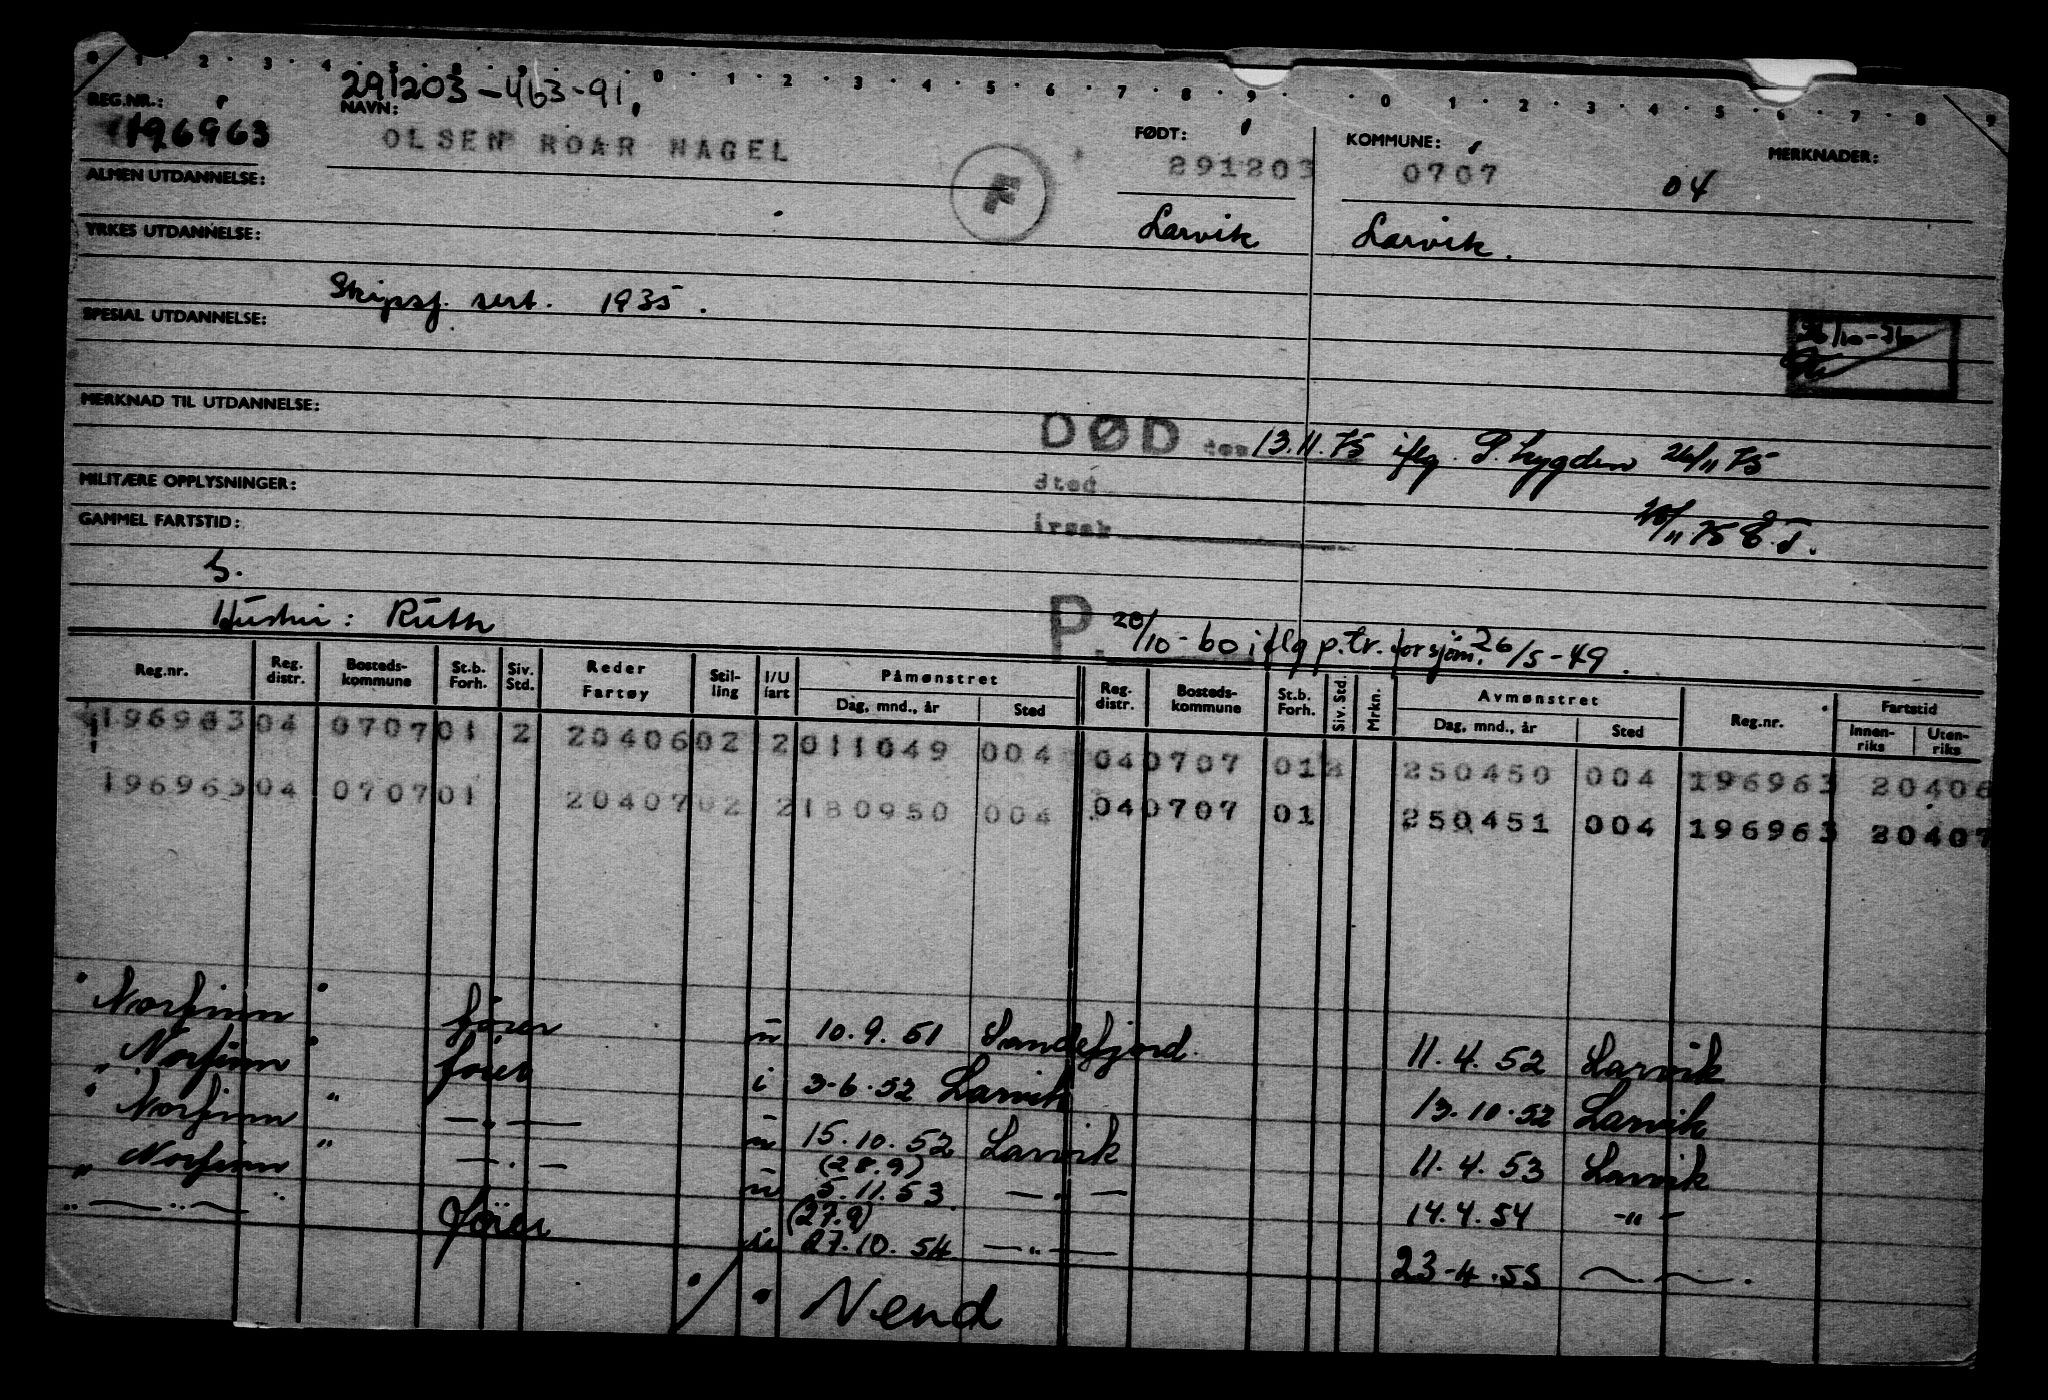 0 · 1 · 2 · 3 · 4 · 5 · 8 · 9 · 0 · 1 · 2 · 3 · 4 · 5 · 6 · 7 · 8 · 9 · 0 1 · 2 · 3 · 4 · 5 · 6 · 7 · 8 · 9
291203-463-91
REG.NR.: NAVN: FØDT: KOMMUNE: MERKNADER:
196963 OLSEN ROAR NAGEL F 291203 0707 04
ALMEN UTDANNELSE:
Larvik Larvik.
YRKES UTDANNELSE:
Skipsf. sert. 1935.
SPESIAL UTDANNELSE:
26/10-76
MERKNAD TIL UTDANNELSE:
DØD den 13.11.75 iflg. P. trygden 26/11 75
sted
MILITÆRE OPPLYSNINGER:
årsak 26/11 75 E.T.
GAMMEL FARTSTID:
S.
Hustru: Ruth
P. 20/10-60 iflg p.tr. for sjøm. 26/5-49.
Reg.nr. Reg. distr. Bosteds-kommune St.b. Forh. Siv. Std. Reder Fartøy Stil-ling I/U fart Påmønstret Dag, mnd., år Sted Reg. distr. Bosteds-kommune St.b. Forh. Siv. Std. Mrkn. Avmønstret Dag, mnd., år Sted Reg.nr. Fartstid Innen-riks Uten-riks
196963 04 0707 01 2 20406 02 2 011049 004 04 0707 01 250450 004 196963 20406
196963 04 0707 01 20407 02 2 180950 004 04 0707 01 250451 004 196963 20407
" Norfinn " fører u 10.9.51 Sandefjord 11.4.52 Larvik
" Norfinn " fører i 3-6.52 Larvik 13.10.52 Larvik
" Norfinn " —"— u 15.10.52 Larvik 11.4.53 Larvik
(28.9)
" Norfinn " —"— u 5.11.53 —"— 14.4.54 —"—
(27.9)
"—"— " fører u 27.10.54 —"— 23-4.55 —"—
Vend